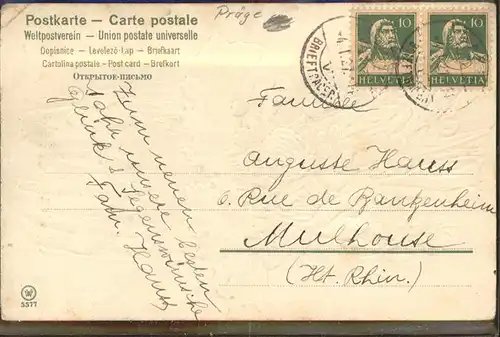 Präge
Postkarte — Carte postale
Weltpostverein — Union postale universelle
Dopisnice — Levelező-Lap — Briefkaart
Cartolina postale - Post card — Brefkort
ОТКРЫТОЕ-ПИСЬМО
10 10
HELVETIA HELVETIA
BRIEFTRÄGER
Zum neuen
Jahr unsere besten
Glück & Segenswünsche
Fam. Hauss
Familie
Auguste Hauss
6. Rue de Bankenheim
Mulhouse
(Ht. Rhin.)
5577